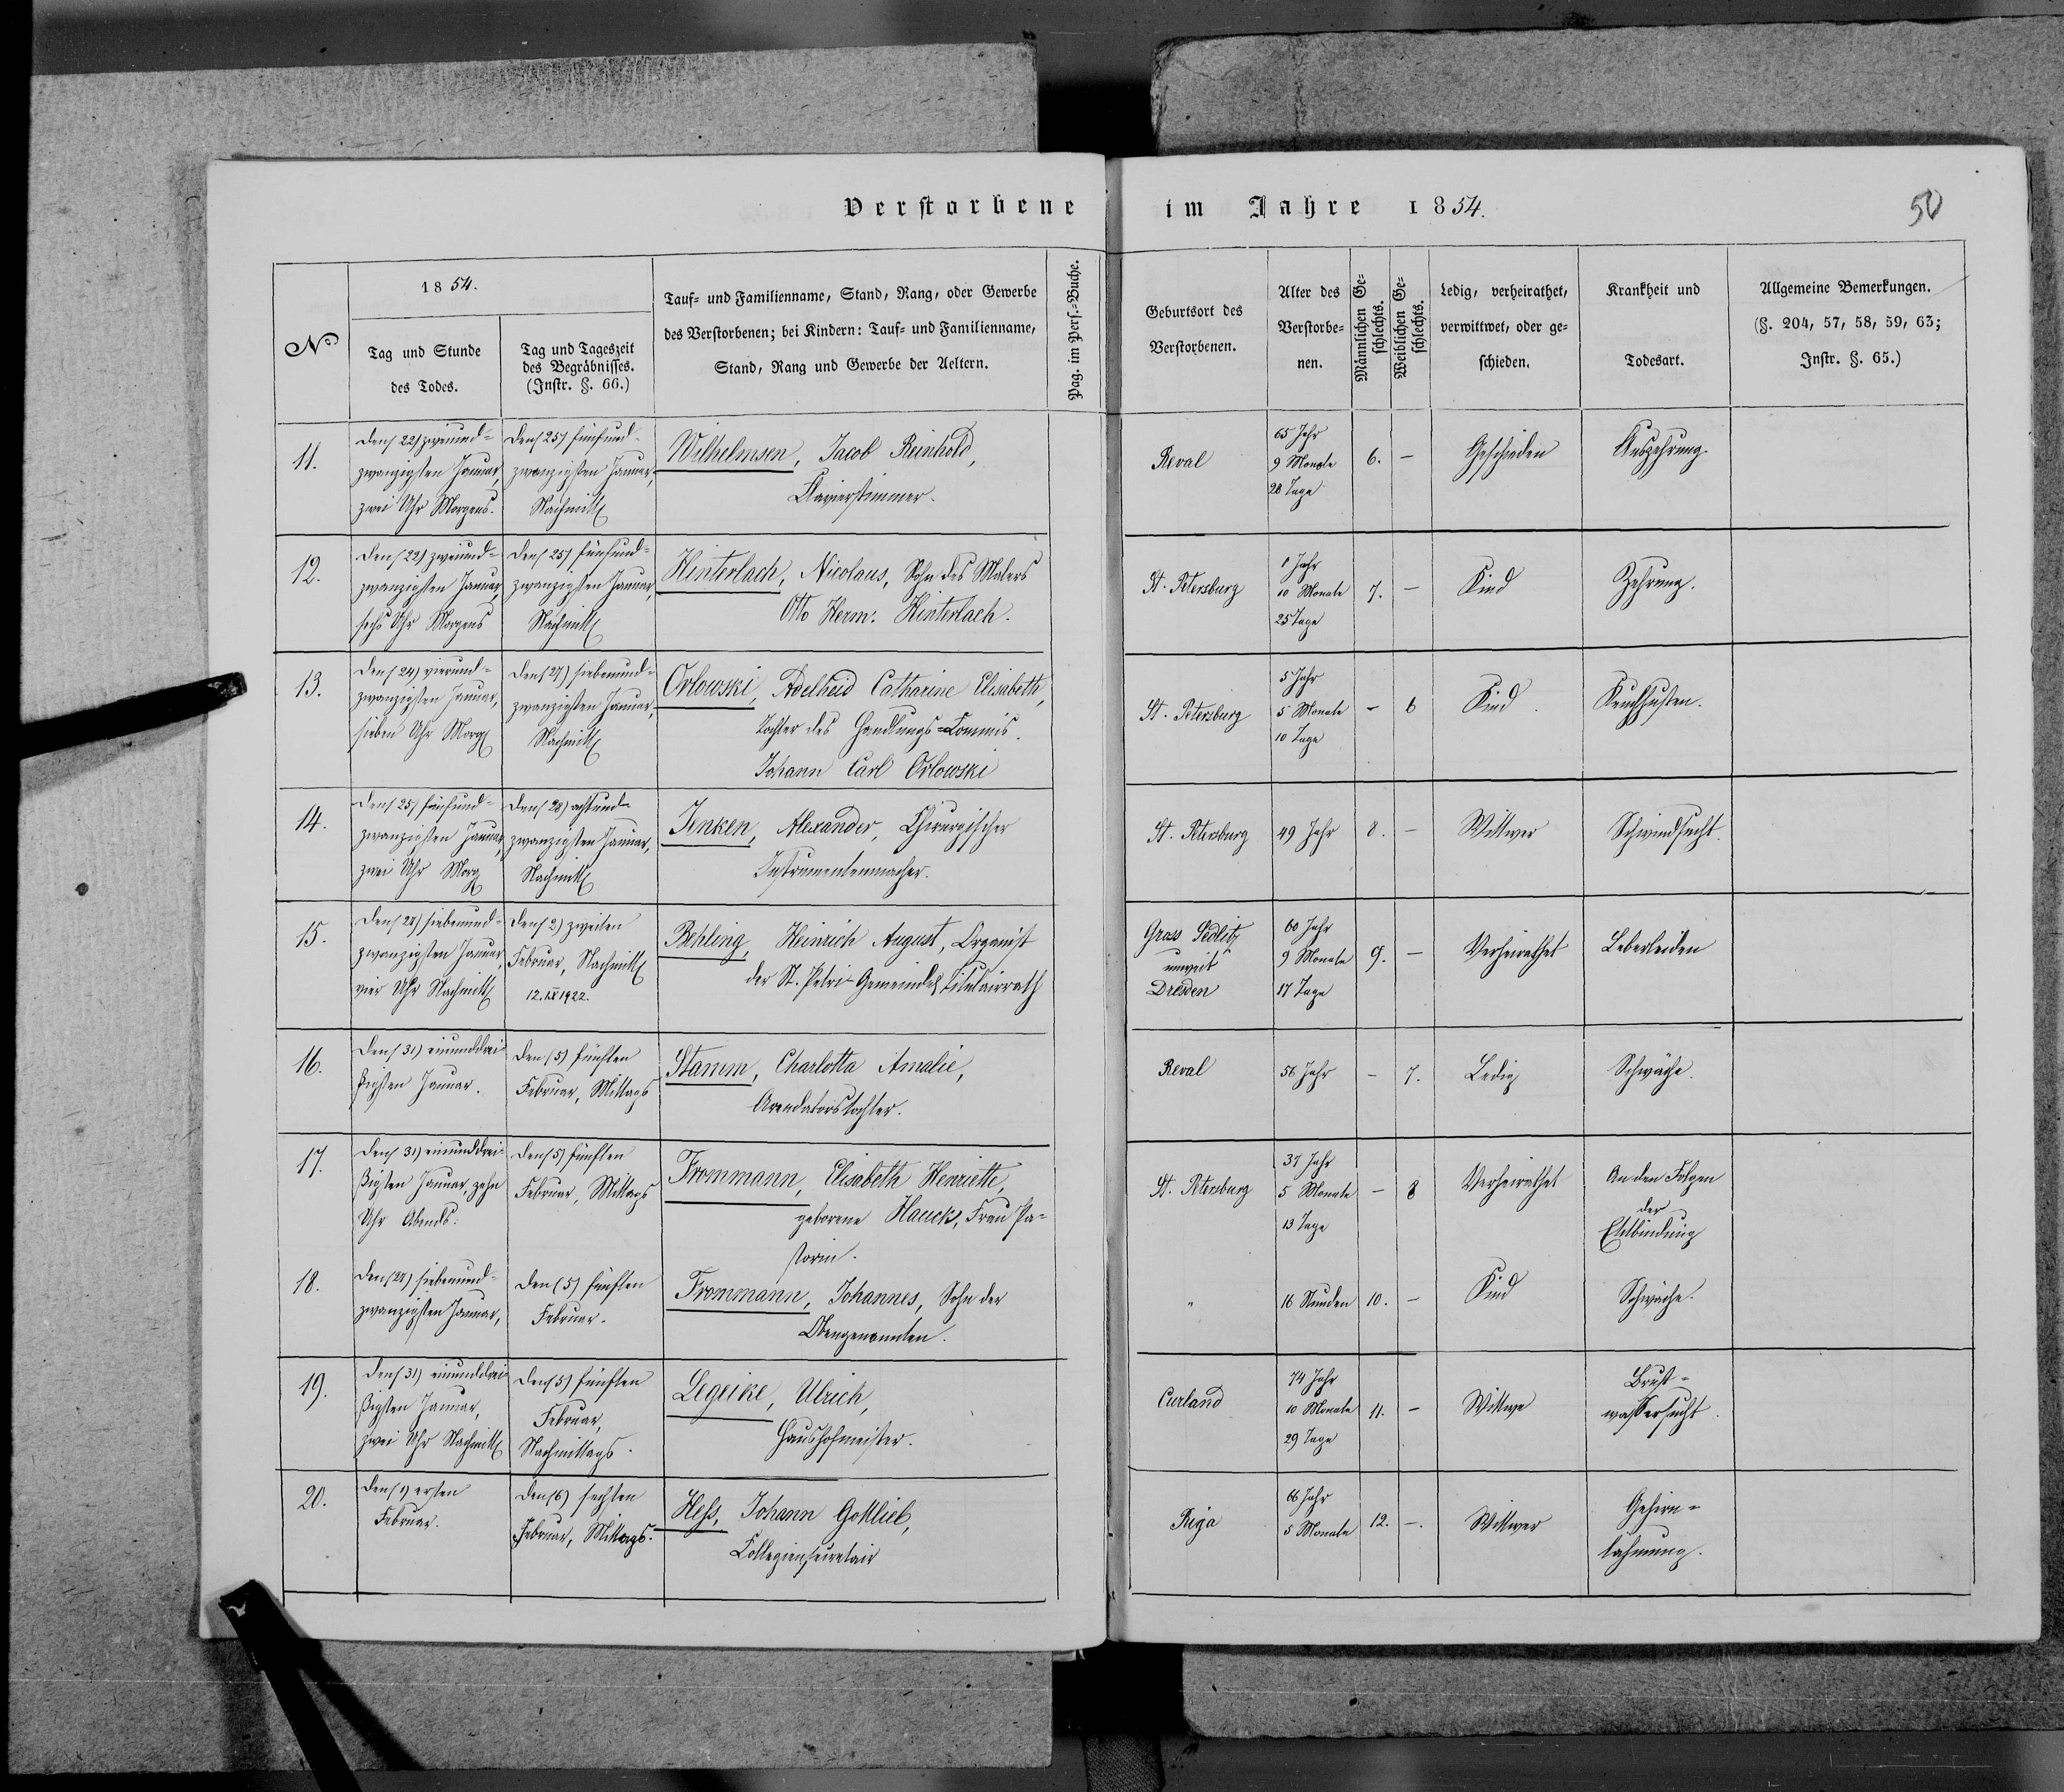 Verstorbene im Jahre 1854.
50
N°
1854.
Tag und Stunde
des Todes.
Tag und Tageszeit
des Begräbnisses.
(Instr. §. 66.)
Tauf- und Familienname, Stand, Rang, oder Gewerbe
des Verstorbenen; bei Kindern: Tauf- und Familienname,
Stand, Rang und Gewerbe der Aeltern.
Pag. im Pers.-Buche.
Geburtsort des
Verstorbenen.
Alter des
Verstorbe-
nen.
Männlichen Ge-
schlechts.
Weiblichen Ge-
schlechts.
Ledig, verheirathet,
verwittwet, oder ge-
schieden.
Krankheit und
Todesart.
Allgemeine Bemerkungen.
(§. 204, 57, 58, 59, 63;
Instr. §. 65.)
11.
Den (22) zweiund-
zwanzigsten Januar,
zwei Uhr Morgens.
Den (25) fünfund-
zwanzigsten Januar,
Nachmitt
Wilhelmsen, Jacob Reinhold,
Clavierstimmer.
Reval
65 Jahr
9 Monate
28 Tage
6.
-
Geschieden
Auszehrung
12.
Den (22) zweiund-
zwanzigsten Januar
sechs Uhr Morgens
Den (25) fünfund-
zwanzigsten Januar,
Nachmitt
Hinterlach, Nicolaus, Sohn des Malers
Otto Herm: Hinterlach.
St. Petersburg
1 Jahr
10 Monate
25 Tage
7.
-
Kind
Zehrung.
13.
Den (24) vierund-
zwanzigsten Januar,
sieben Uhr Morg
Den (27) siebenund-
zwanzigsten Januar,
Nachmitt
Orlowski, Adelheid Catharine Elisabeth,
Tochter des Handlungs-Commis.
Johann Carl Orlowski
St. Petersburg
5 Jahr
5 Monate
10 Tage
-
6
Kind.
Keuchhusten.
14.
Den (25) fünfund-
zwanzigsten Januar,
zwei Uhr Morg
Den (28) achtund-
zwanzigsten Januar,
Nachmitt
Jenken, Alexander, Chirurgischer
Instrumentenmacher.
St. Petersburg
49 Jahr
8.
-
Wittwer
Schwindsucht.
15.
Den (27) siebenund-
zwanzigsten Januar,
vier Uhr Nachmitt
Den (2) zweiten
Februar, Nachmitt
12. IX 1922.
Behling, Heinrich August, Organist
der St. Petri-Gemeinde, Titulairrath
Gross Sedlitz
unweit
Dresden
60 Jahr
9 Monate
17 Tage
9.
-
Verheirathet
Leberleiden
16.
Den (31) einunddrei
ßigsten Januar.
Den (5) fünften
Februar, Mittags
Stamm, Charlotta Amalie,
Arendatorstochter.
Reval
56 Jahr
-
7.
Ledig
Schwäche.
17.
Den (31) einunddrei
ßigsten Januar, zehn
Uhr Abends.
Den (5) fünften
Februar, Mittags
Frommann, Elisabeth Henriette,
geborene Hauck, Frau Pa-
storin.
St. Petersburg
37 Jahr
5 Monate
13 Tage
-
8
Verheirathet
An den Folgen
der
Entbindung
18.
Den (27) siebenund-
zwanzigsten Januar,
Den (5) fünften
Februar.
Frommann, Johannes, Sohn der
Obengenannten.
"
16 Stunden
10.
-
Kind
Schwäche.
19.
Den (31) einunddrei
ßigsten Januar,
zwei Uhr Nachmitt
Den (5) fünften
Februar,
Nachmittags.
Legeike, Ulrich,
Haushofmeister.
Curland
74 Jahr
10 Monate
29 Tage
11.
-
Wittwe
Brust-
wassersucht.
20.
Den (1) ersten
Februar.
Den (6) sechsten
Februar, Mittags.
Heß, Johann Gottlieb,
Collegiensecretair
Riga
66 Jahr
5 Monate
12.
-.
Wittwer
Gehirn-
lähmung.